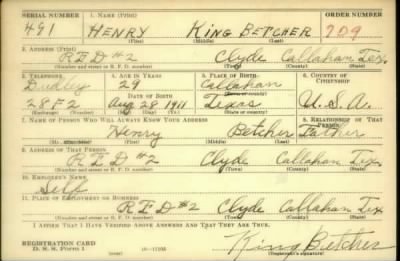 SERIAL NUMBER 1. NAME (Print) ORDER NUMBER
491 HENRY KING BETCHER 709
(First) (Middle) (Last)
2. ADDRESS (Print)
RFD #2 Clyde Callahan Tex.
(Number and street or R. F. D. number) (Town) (County) (State)
3. TELEPHONE 4. AGE IN YEARS 5. PLACE OF BIRTH 6. COUNTRY OF CITIZENSHIP
Dudley 29 Callahan
DATE OF BIRTH (Town or county)
28F2 Aug 28 1911 Texas U.S.A.
(Exchange) (Number) (Mo.) (Day) (Yr.) (State or country)
7. NAME OF PERSON WHO WILL ALWAYS KNOW YOUR ADDRESS 8. RELATIONSHIP OF THAT PERSON
Henry Betcher Father
(First) (Middle) (Last)
9. ADDRESS OF THAT PERSON
RFD #2 Clyde Callahan Tex.
(Number and street or R. F. D. number) (Town) (County) (State)
10. EMPLOYER'S NAME
Self
11. PLACE OF EMPLOYMENT OR BUSINESS
RFD #2 Clyde Callahan Tex
(Number and street or R. F. D. number) (Town) (County) (State)
I AFFIRM THAT I HAVE VERIFIED ABOVE ANSWERS AND THAT THEY ARE TRUE.
REGISTRATION CARD
D. S. S. FORM 1 King Betcher
(Registrant's signature)